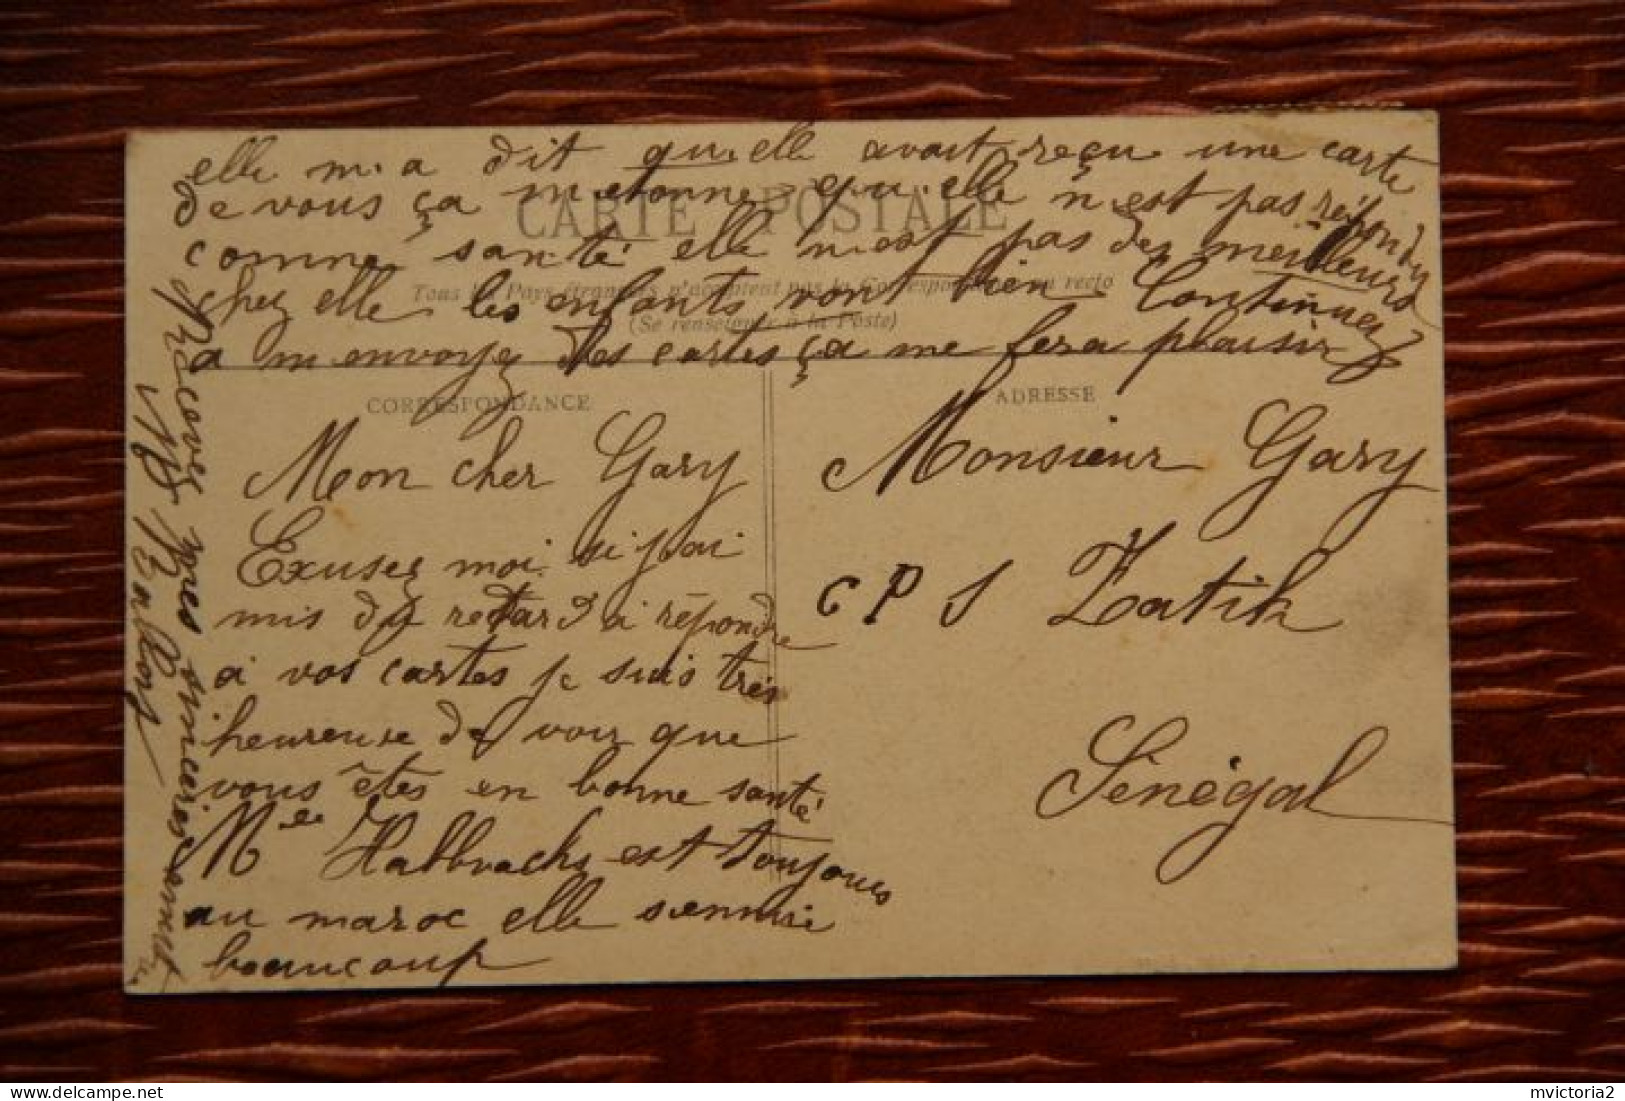 elle m.a dit qu.elle avait reçu une carte
de vous ça m.etonne qu.elle n.est pas répondu
CARTE POSTALE
comme santé elle n.est pas des meilleurs
Tous les Pays étrangers n'acceptent pas la Correspondance au recto
chez elle les enfants vont bien Continuez
(Se renseigner à la Poste)
a m.envoyez des cartes ça me fera plaisir
CORRESPONDANCE
Mon cher Gary
Exusez moi si j'ai
mis du retard a répondre
a vos cartes je suis très
heureuse de voir que
vous êtes en bonne santé
Mlle Halbwachs est toujours
au maroc elle s.ennuie
beaucoup
Recevez mes sincères
ADRESSE
Monsieur Gary
C P S Zatih
Sénégal
mvictoria2